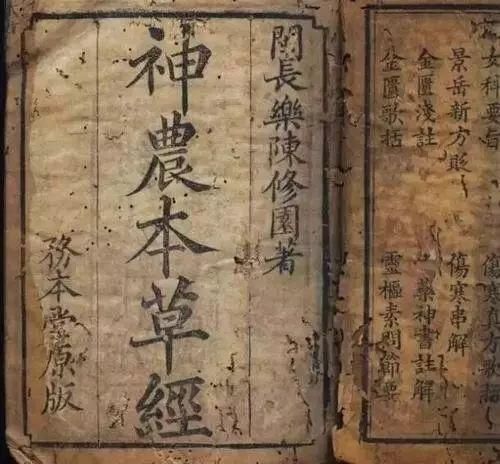 女科要旨 傷寒真方歌括
景岳新方砭 傷寒串解
金匱淺註 神書註解
金匱歌括 靈樞素問節要
閩長樂陳修園著
神農本草經
務本堂原版